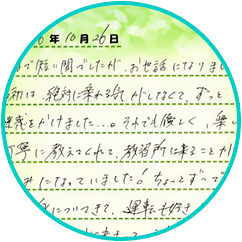 年10月26日
で短い間でしたが、お世話になりまし
初は、絶対に乗れる気がしなくて、ずっと
迷惑をかけました...。それでも優しく、楽し
丁寧に教えてくれて、教習所に来ることが
みになっていました！ちょっとずつで
についてきて、運転も好き